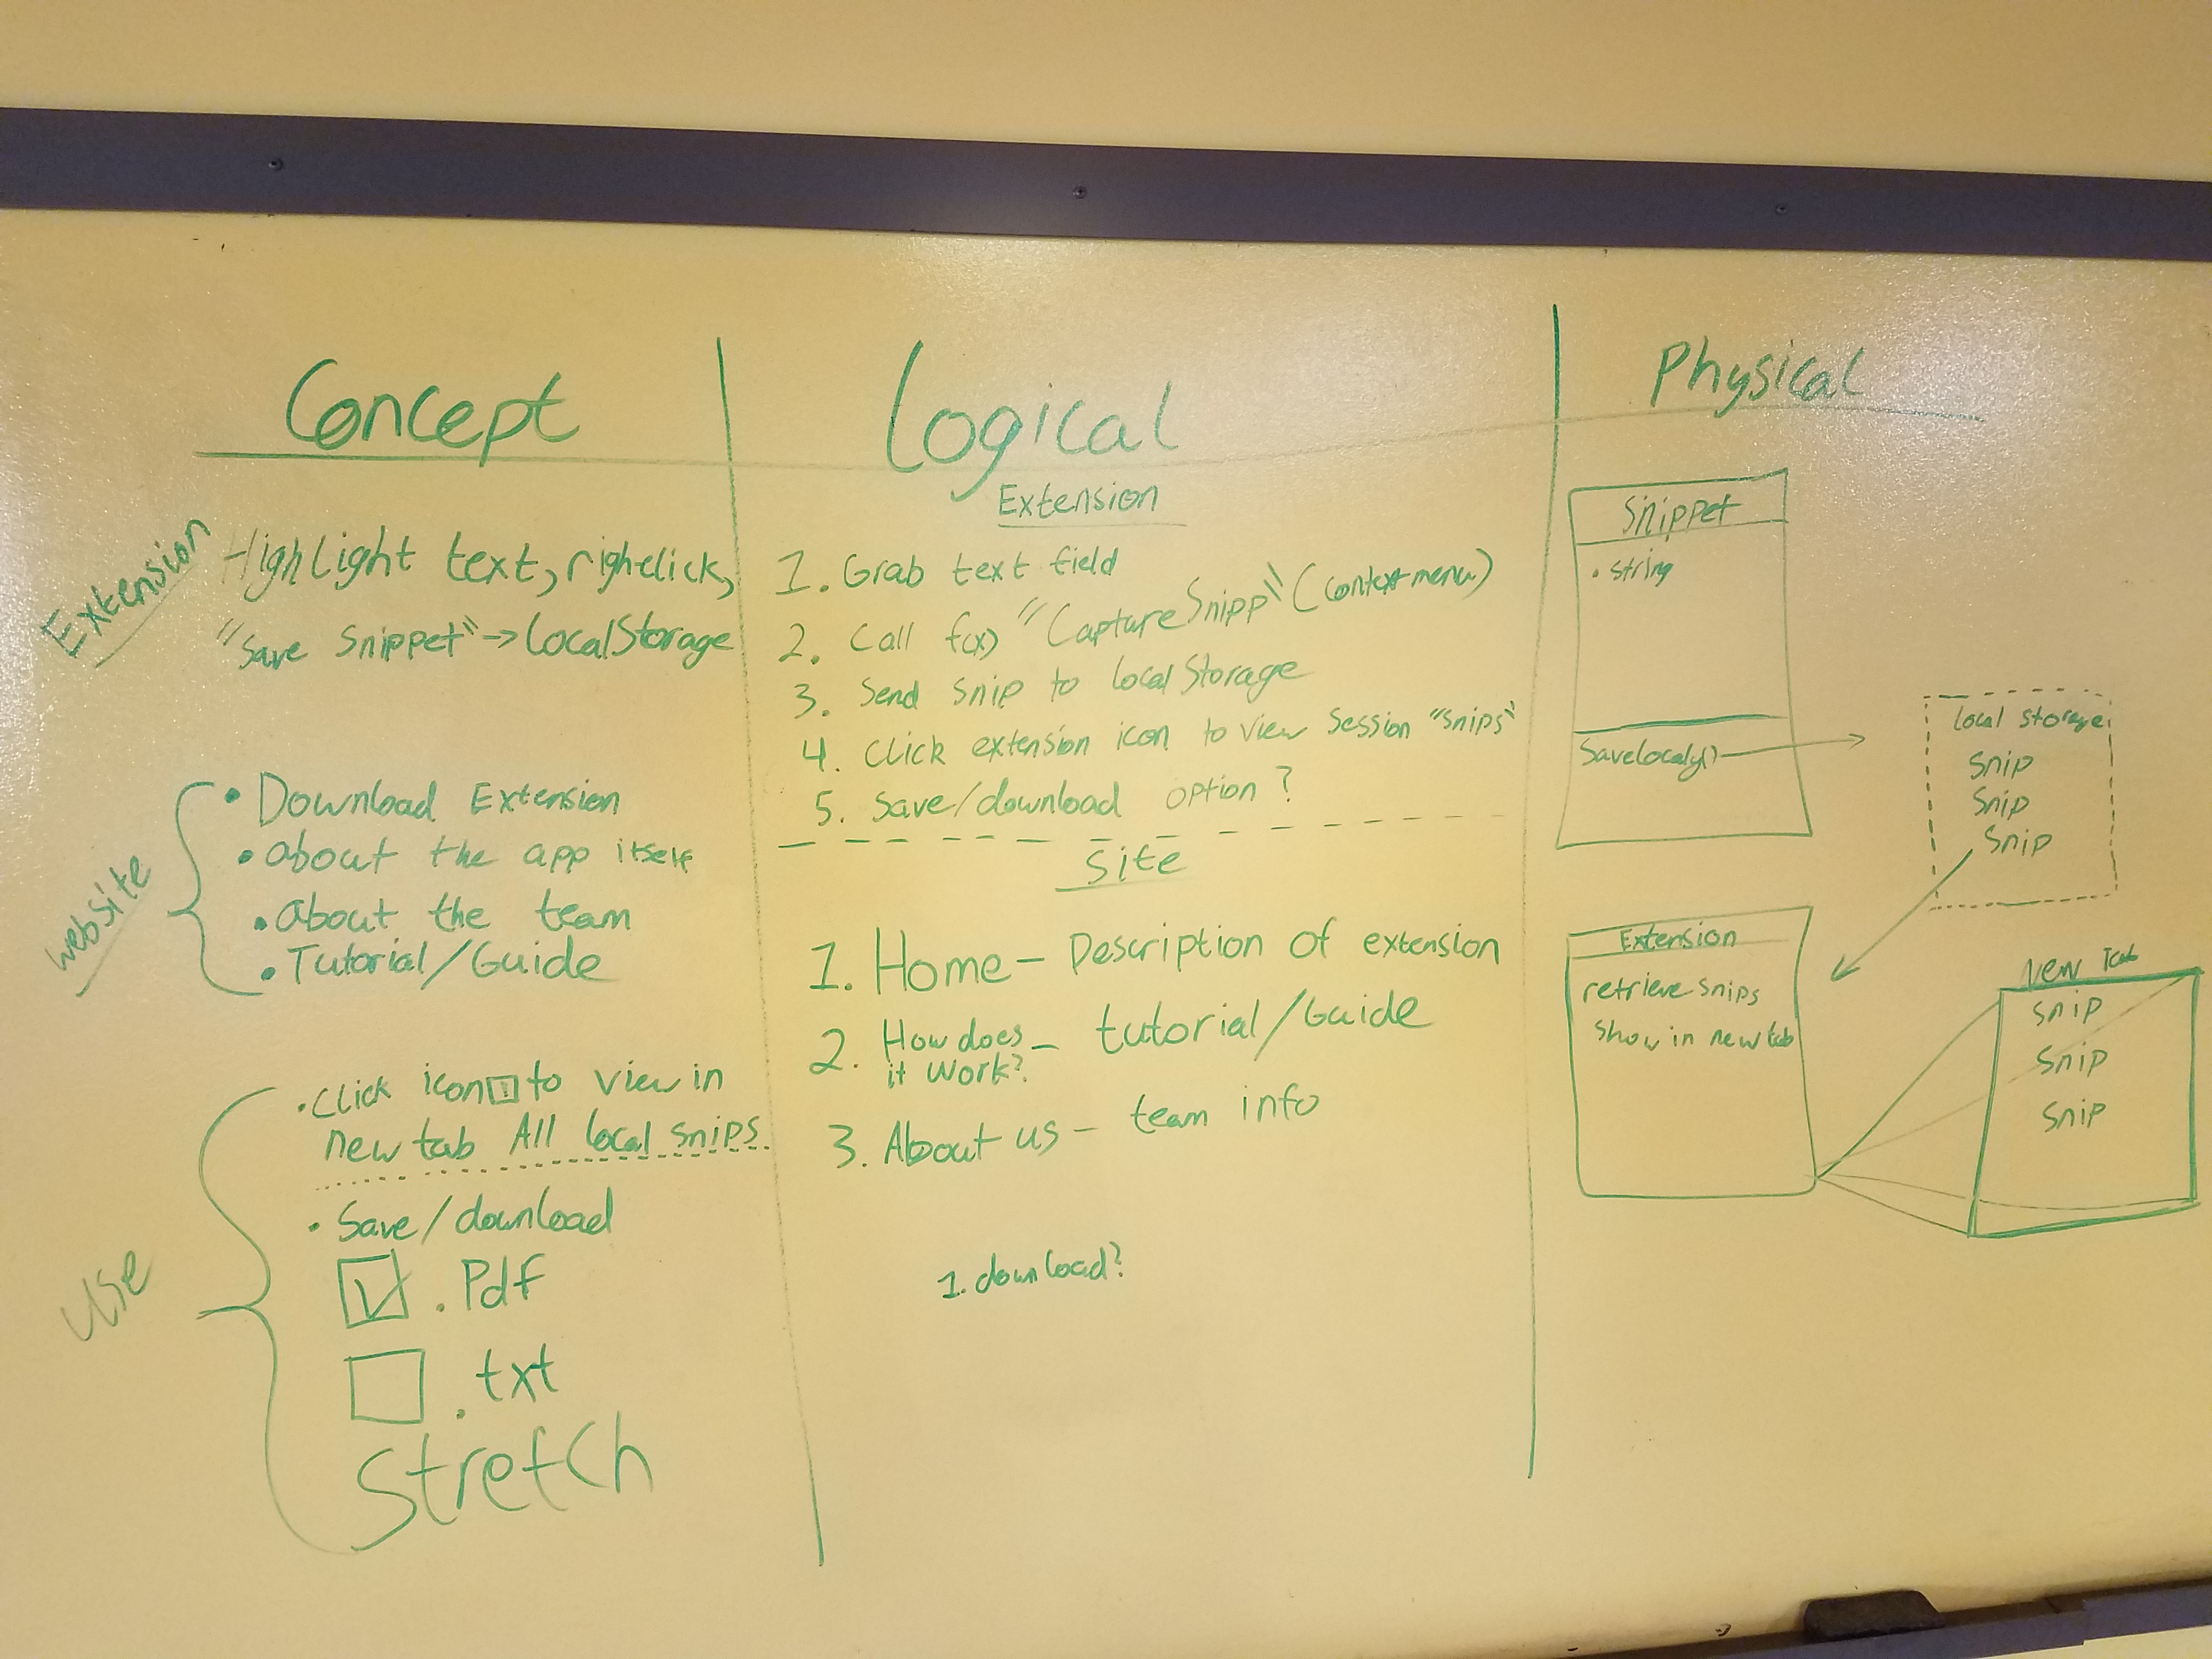 Concept
Extension
Highlight text, righclick,
"Save Snippet" -> LocalStorage
website
• Download Extension
• about the app itself
• about the team
• Tutorial/Guide
Use
• Click icon to view in
new tab All local snips.
• Save/download
.Pdf
.txt
Stretch
Logical
Extension
1. Grab text field
2. Call f(x) "CaptureSnipp" (context menu)
3. Send snip to local Storage
4. Click extension icon to view Session "snips"
5. Save/download option?
Site
1. Home - Description of extension
2. How does it work? - tutorial/Guide
3. About us - team info
1. download?
Physical
Snippet
• string
Savelocaly()
local storage
Snip
Snip
Snip
Extension
retrieve snips
show in new tab
New Tab
Snip
Snip
Snip